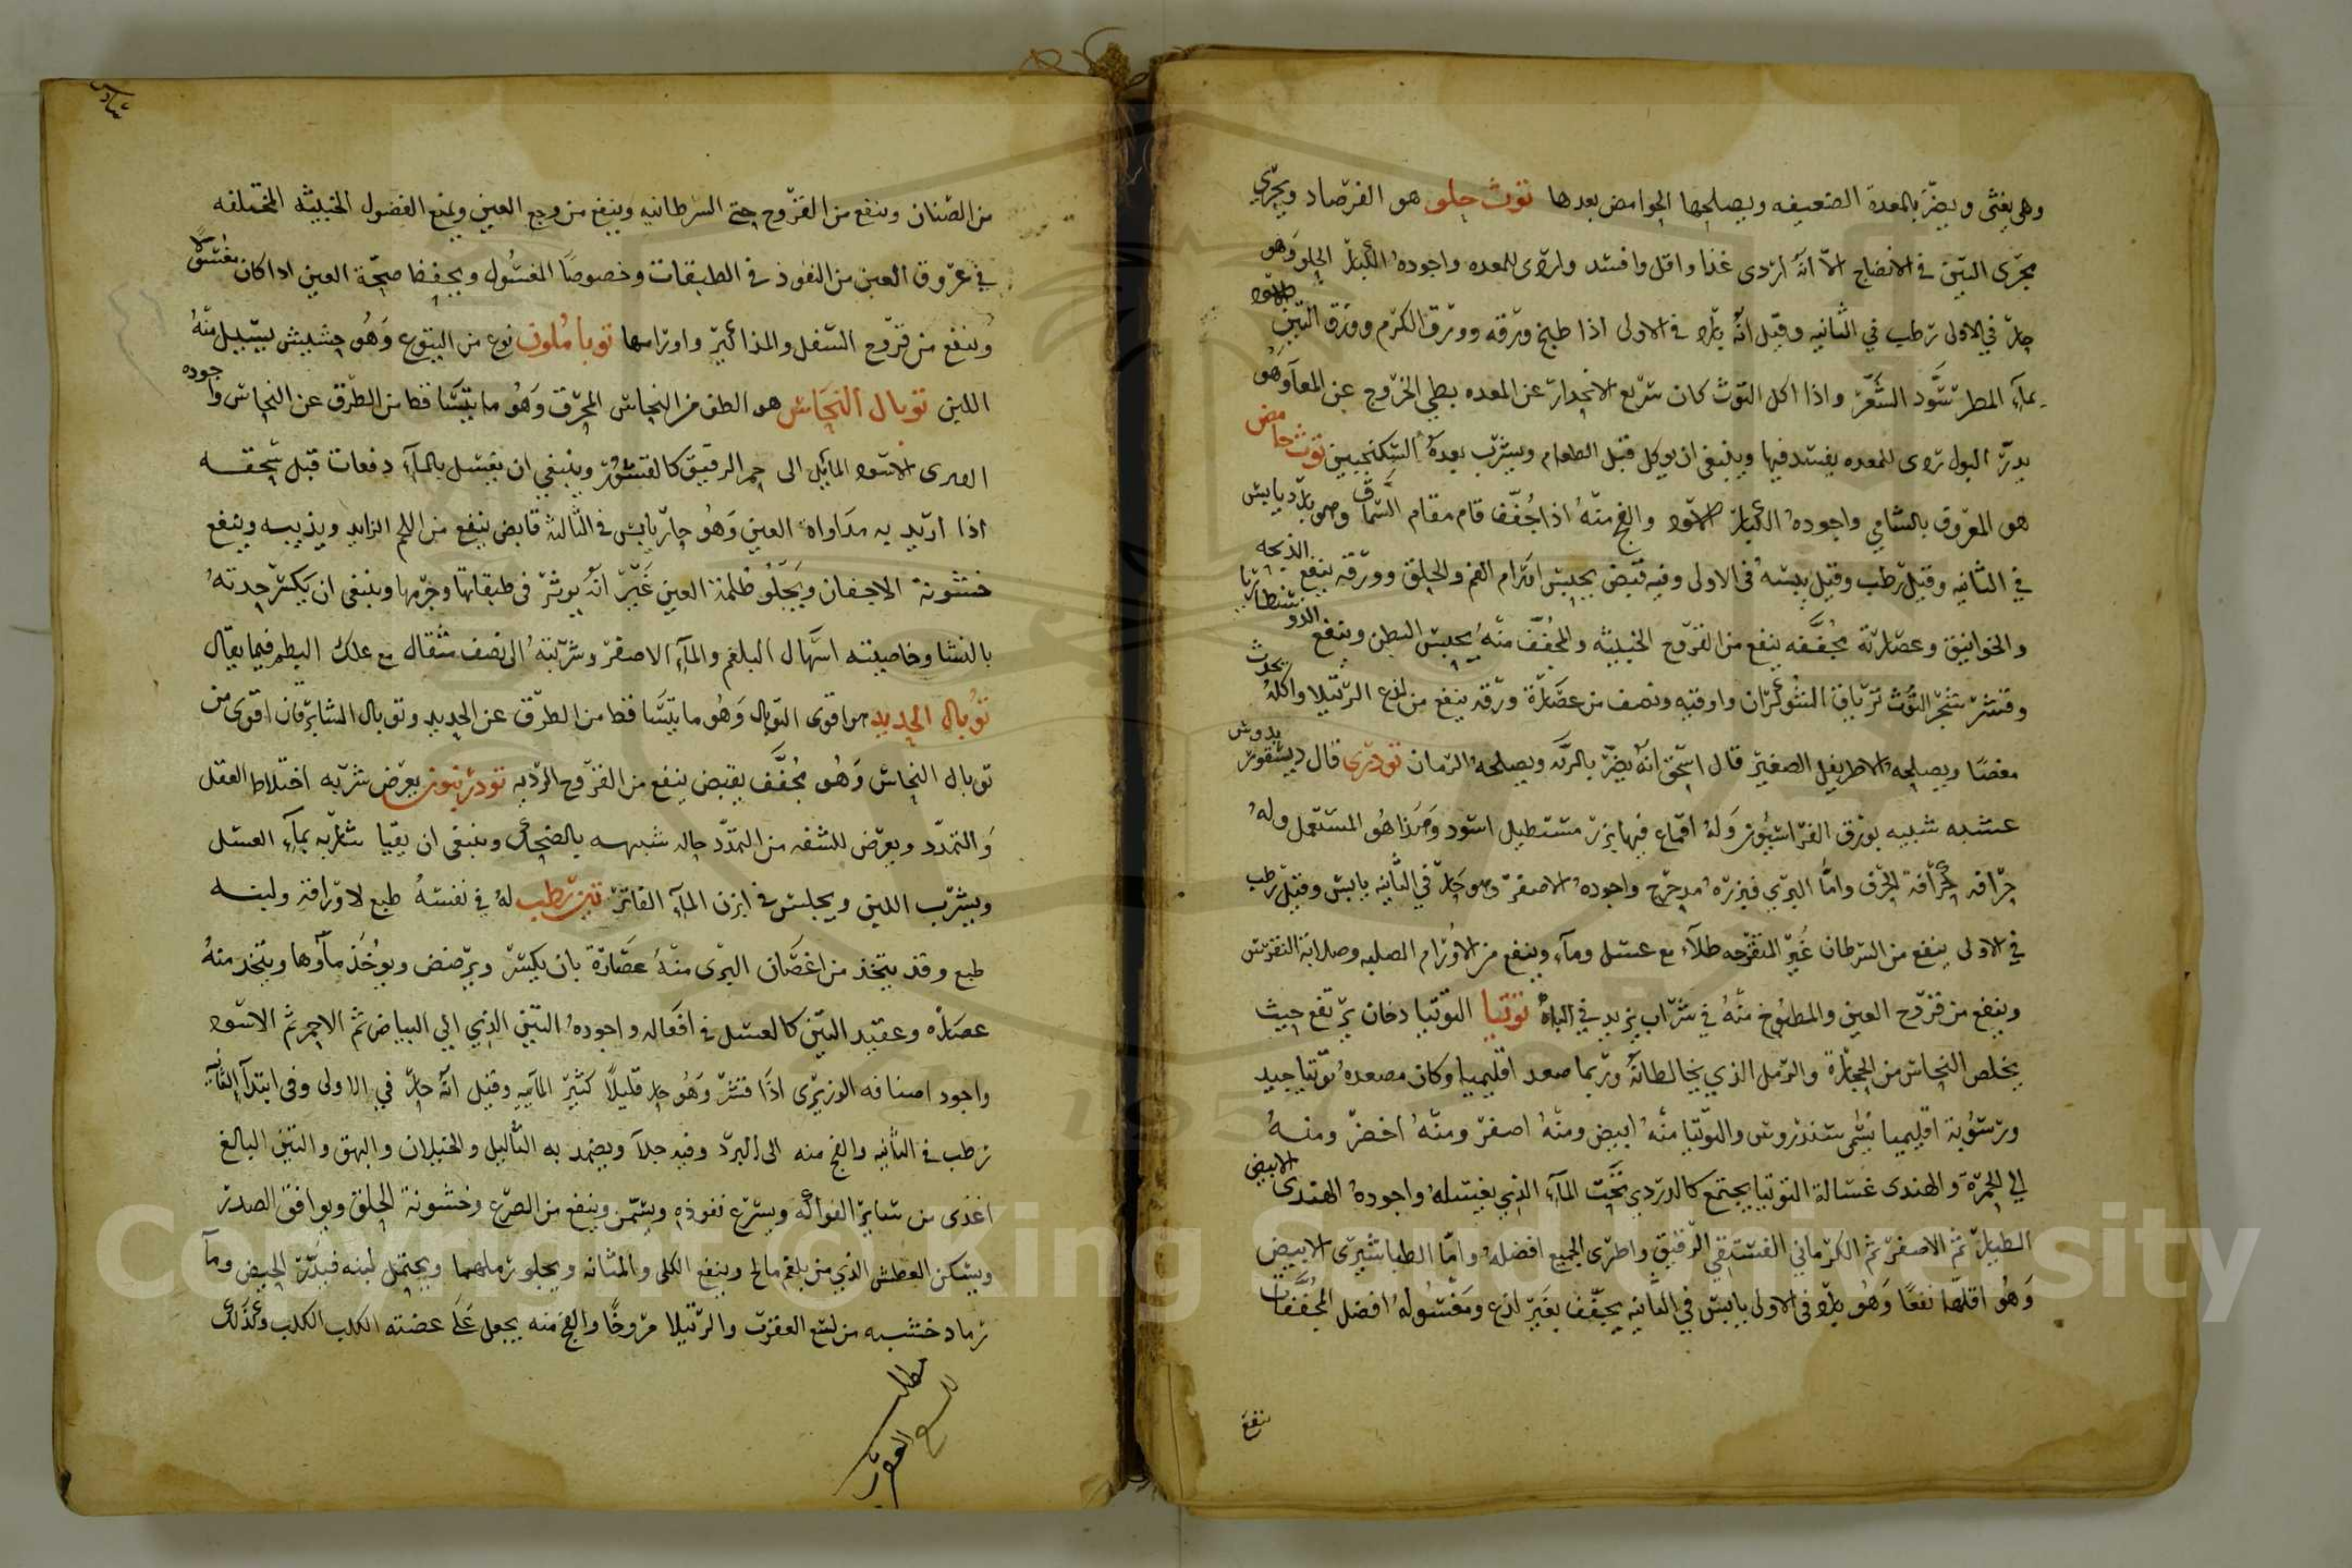 وهى يغثى ويضر بالمعدة الضعيفه ويصلحها الحوامض بعدها توث حلو هو الفرصاد ويجرى
مجرى التين فى الانضاج الا انه اردى غذا واقل وافسد واردى للمعده واجوده الكبار الحلو وهو
حار فى الاولى رطب فى الثانيه وقيل انه بارد فى الاولى اذا طبخ ورقه وورق الكرم وورق التين الاسود
بماء المطر سود الشعر واذا اكل التوث كان سريع الانحدار عن المعده بطى الخروج عن المعا وهو
يدر البول ردى للمعده يفسد فيها وينبغى ان يوكل قبل الطعام ويشرب بعده السكنجبين توث حامض
هو المعروف بالشامي واجوده الكبار الاسود والفج منه اذا جفف قام مقام السماق وهو بارد يابس
في الثانيه وقيل رطب وقيل يبسه فى الاولى وفيه قبض يحبس اورام الفم والحلق وورقه ينفع الذبحه
والخوانيق وعصارته مجففه ينفع من القروح الخبيثه والمجفف منه يحبس البطن وينفع
وقشر شجر التوث ترياق الشوكران واوقيه ونصف من عصارة ورقه ينفع من لذع الرتيلا واكله يحدث
مغصا ويصلحه الاطريفل الصغير قال اسحق انه يضر بالريه ويصلحه الرمان تودرى قال ديسقوريدوس
عشبه شبيه بورق الفراسيون وله اقماع فيها بزر مستطيل اسود وهذا هو المستعمل وله
حرافه كحرافة الحرف واما البري فبزره مدحرج واجوده الاصفر وهو حار في الثانيه يابس وقيل رطب
في الاولى ينفع من السرطان غير المتقرحه طلاء مع عسل وماء وينفع من الاورام الصلبه وصلابة النقرس
وينفع من قروح العين والمطبوخ منه في شراب يزيد في الباه توتيا التوتيا دخان يرتفع حيث
يخلص النحاس من الحجارة والرمل الذي يخالطانه وربما صعد اقليميا وكان مصعده توتيا جيد
ورسوبه اقليميا يسمى سندروس والتوتيا منه ابيض ومنه اصفر ومنه اخضر ومنه
الي الحمرة والهندى غسالة التوتيا يجتمع كالدردي تحت الماء الذي يغسله واجوده الهندى الابيض
الطيار ثم الاصفر ثم الكرماني الفستقي الرقيق واطرى الجميع افضله واما الطباشيرى الابيض
وهو اقلها نفعا وهو بارد فى الاولى يابس في الثانيه يجفف بغير لذع ومغسوله افضل المجففات
ينفع
من الصنان وينفع من القروح حتى السرطانيه وينفع من وجع العين ويمنع الفضول الخبيثه المختلفه
في عروق العين من النفوذ في الطبقات وخصوصا المغسول ويحفظ صحة العين اذا كان مغسولا
وينفع من قروح السفل والمذاكير واورامها توباملون نوع من اليتوع وهو حشيش يسيل منه
اللبن توبال النحاس هو الطف من النحاس المحرق وهو ما يتساقط من الطرق عن النحاس واجوده
الاسود المائل الى حمر الرقيق كالقشور وينبغي ان يغسل بالماء دفعات قبل سحقه
اذا اريد به مداواه العين وهو حار يابس في الثالثه قابض ينفع من اللحم الزايد ويذيبه وينفع
خشونة الاجفان ويجلو ظلمة العين غير انه يوثر فى طبقاتها وجرمها وينبغى ان يكسر حدته
بالنشا وخاصيته اسهال البلغم والماء الاصفر وشربته الى نصف مثقال مع علك البطم فيما يقال
توبال الحديد هو اقوى التوبال وهو ما يتساقط من الطرق عن الحديد وتوبال الشابرقان اقوى من
توبال النحاس وهو مجفف بقبض ينفع من القروح الرديه تودريون يعرض شربه اختلاط العقل
والتمدد ويعرض للشفه من التمدد حاله شبيهه بالضحك وينبغى ان يقيا شاربه بماء العسل
ويشرب اللبن ويجلس فى ابزن الماء الفاتر تين رطب له في نفسه طبع لاوراقه ولبنه
طبع وقد يتخذ من اغصان البرى منه عصارة بان يكسر ويرضض ويوخذ ماؤها ويتخذ منه
عصاره وعقيد التين كالعسل فى افعاله واجوده التين الذي الي البياض ثم الاحمر ثم الاسود
واجود اصنافه الوزيرى اذا قشر وهو حار قليلا كثير المائيه وقيل انه حار في الاولى وفى ابتدا الثانيه
رطب فى الثانيه والفج منه الى البرد وفيه جلا ويضمد به الثاليل والخيلان والبهق والتين البالغ
اغذى من ساير الفواكه ويسرع نفوذه ويسمن وينفع من الصرع وخشونة الحلق ويوافق الصدر
ويسكن العطش الذي من بلغم مالح وينفع الكلى والمثانه ويجلو رملهما ويحتمل لبنه فيدرر الحيض وما
رماد خشبه من لسع العقرب والرتيلا مروخا والفج منه يجعل على عضته الكلب الكلب وكذلك
مطلب
لسع العقرب
Copyright © King Saud University
1957